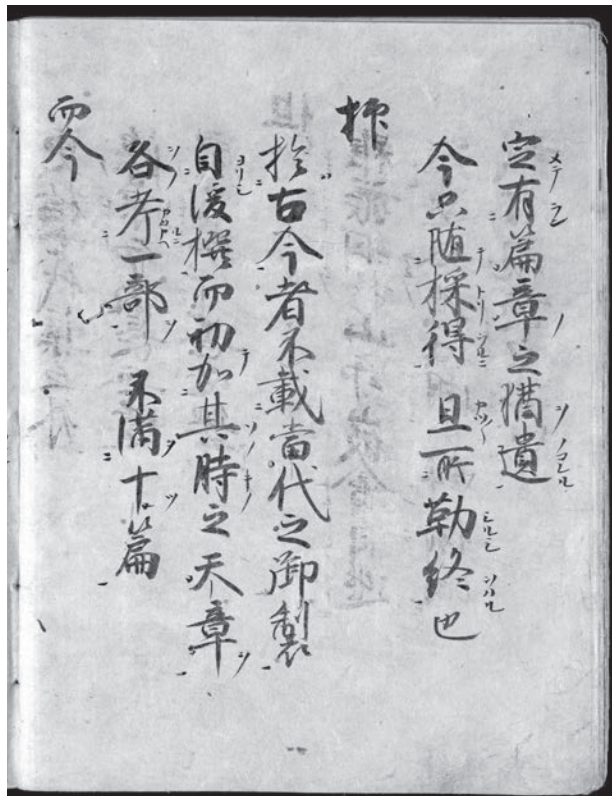 定有篇章之猶遺
今只随採得 且所勒終也
抑
於古今者不載當代之御製
自後撰而初加其時之天章
各考一部 不満十篇
而今